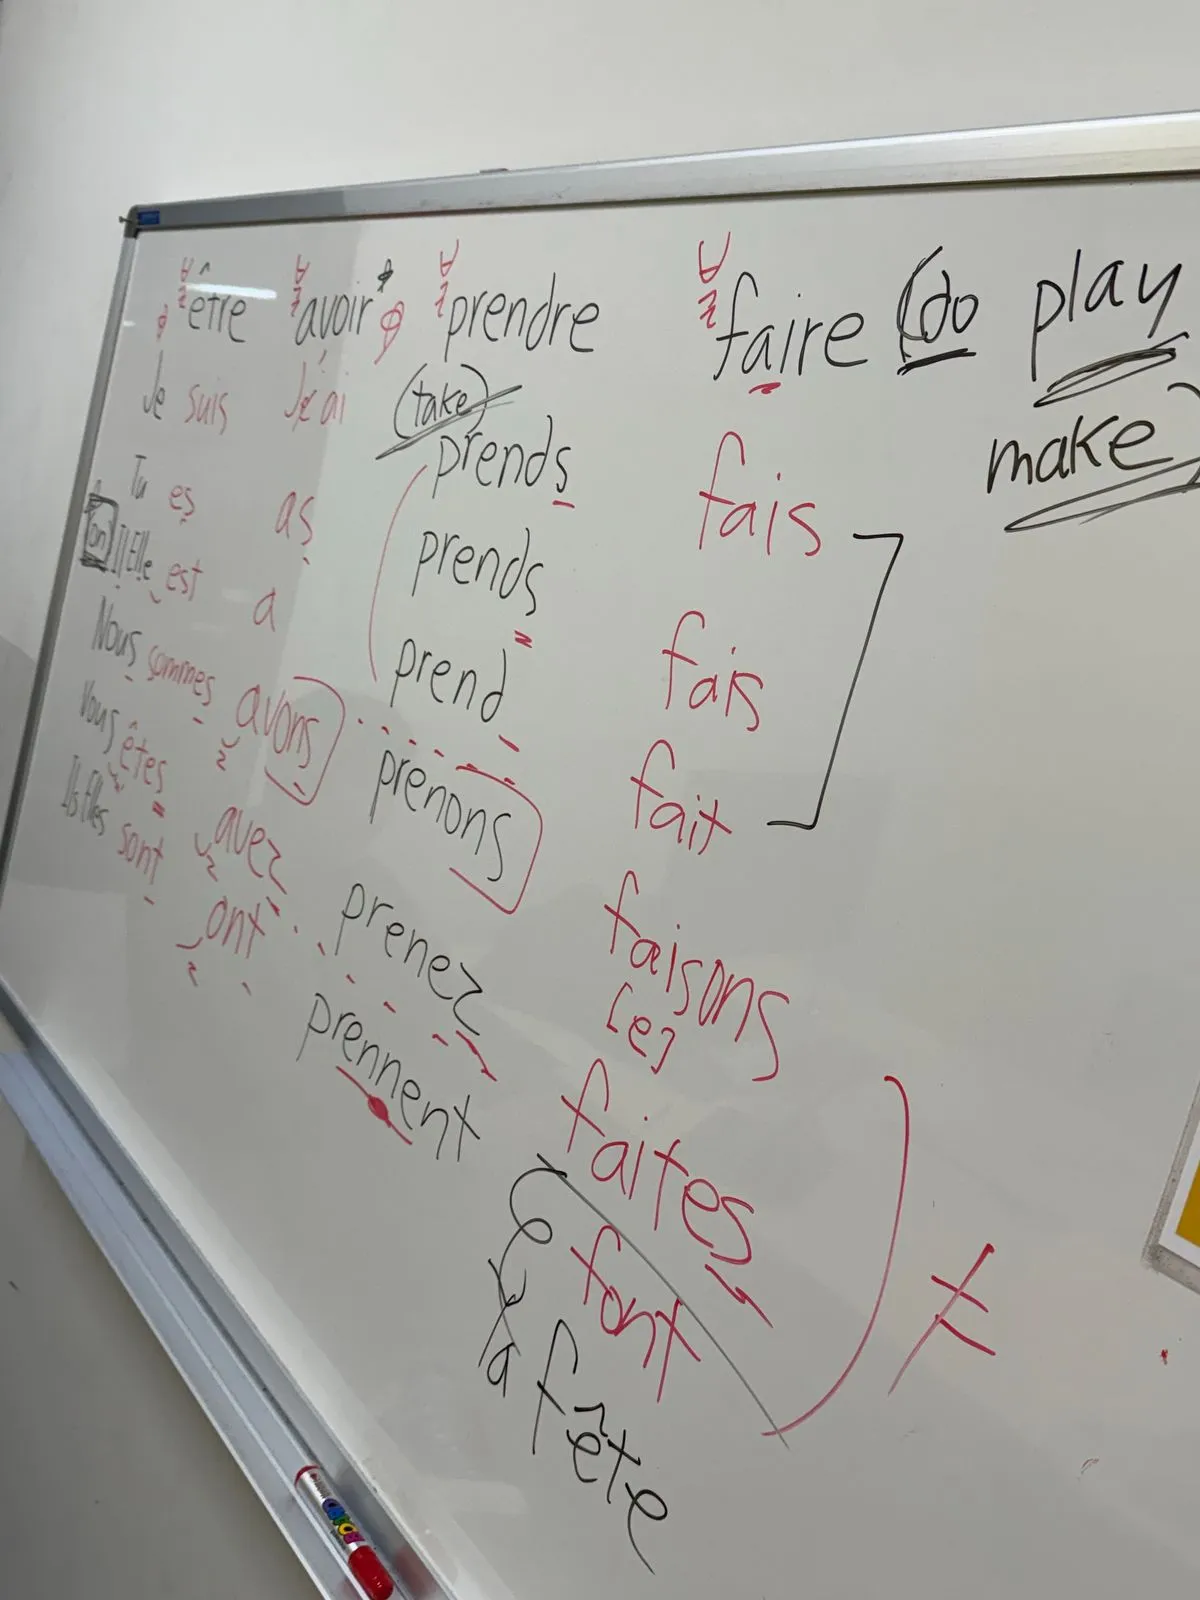 être avoir* prendre faire (do play
make)
(take)
Je suis J'ai prends fais
Tu es as prends fais
on Il Elle est a prend fait
Nous sommes avons prenons faisons
[e]
Vous êtes avez prenez faites
Ils Elles sont ont prennent font
≠
la fête